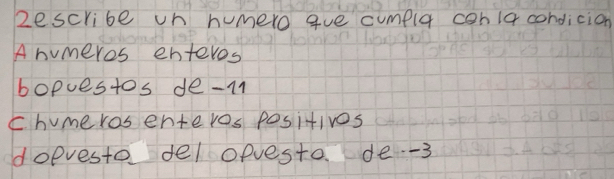 2escribe un numero que cumpla con la condicion
A numeros enteros
b opuestos de -11
c numeros enteros positivos
d opuesto del opuesto de -3